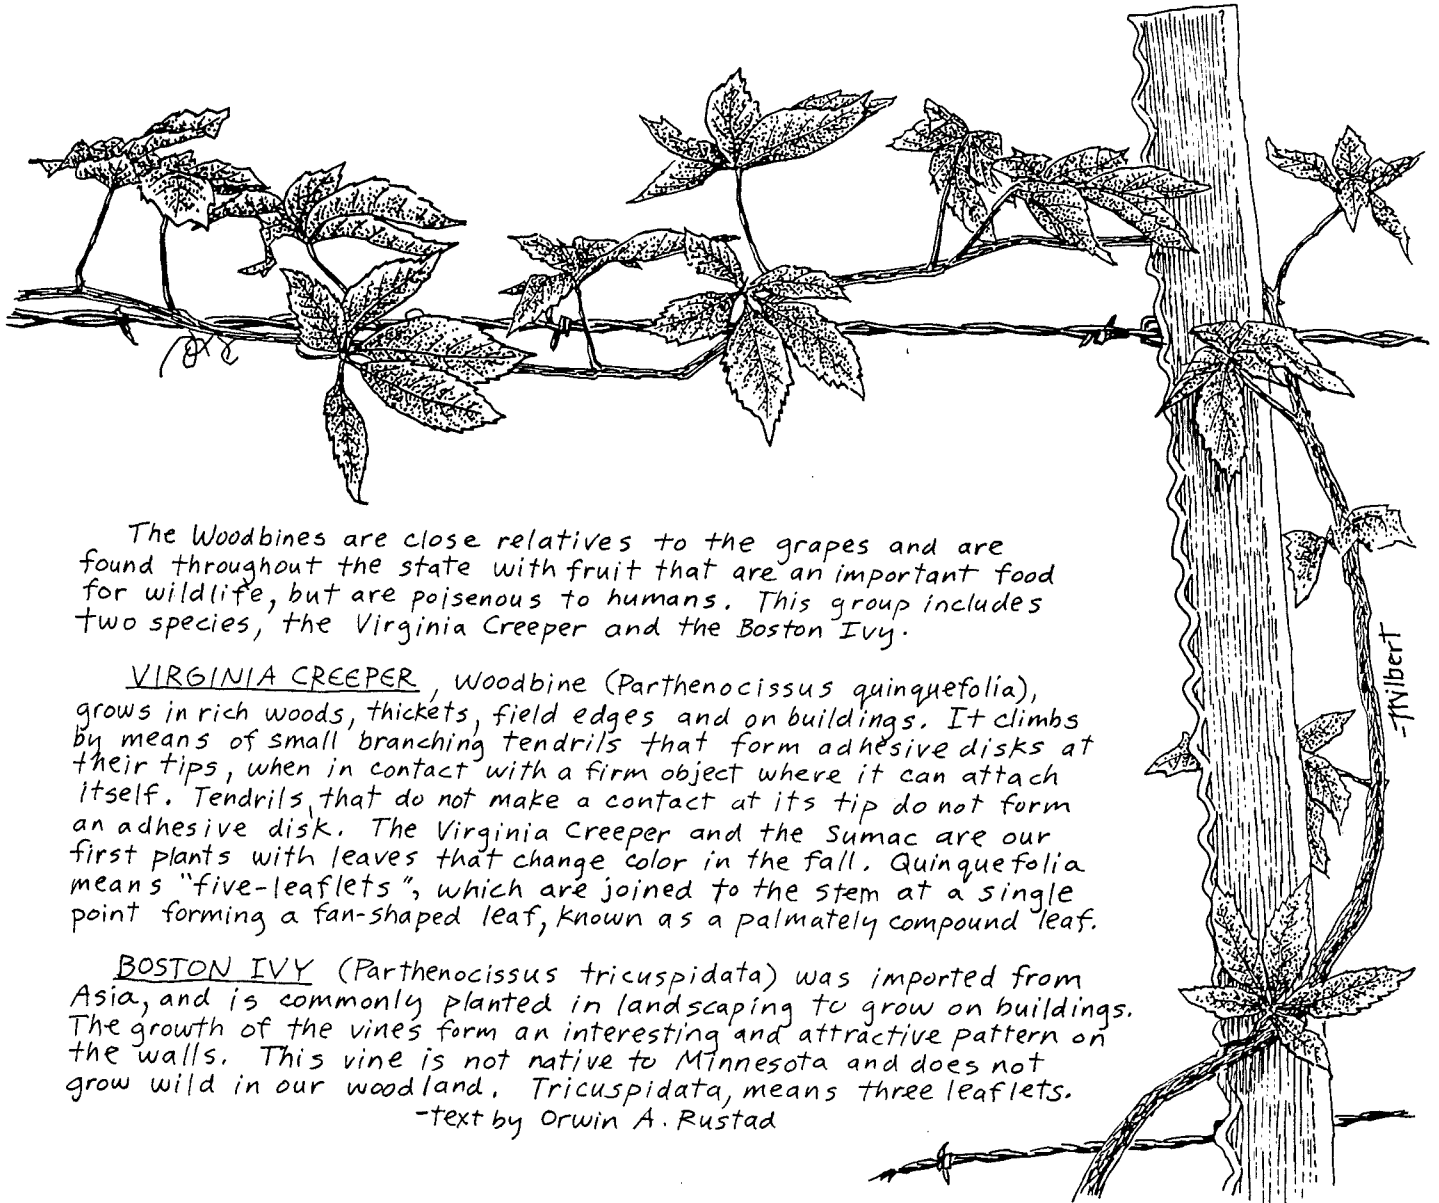 The Woodbines are close relatives to the grapes and are
found throughout the state with fruit that are an important food
for wildlife, but are poisenous to humans. This group includes
two species, the Virginia Creeper and the Boston Ivy.
VIRGINIA CREEPER, Woodbine (Parthenocissus quinquefolia),
grows in rich woods, thickets, field edges and on buildings. It climbs
by means of small branching tendrils that form adhesive disks at
their tips, when in contact with a firm object where it can attach
itself. Tendrils, that do not make a contact at its tip do not form
an adhesive disk. The Virginia Creeper and the Sumac are our
first plants with leaves that change color in the fall. Quinquefolia
means "five-leaflets", which are joined to the stem at a single
point forming a fan-shaped leaf, known as a palmately compound leaf.
BOSTON IVY (Parthenocissus tricuspidata) was imported from
Asia, and is commonly planted in landscaping to grow on buildings.
The growth of the vines form an interesting and attractive pattern on
the walls. This vine is not native to Minnesota and does not
grow wild in our woodland. Tricuspidata, means three leaflets.
-text by Orwin A. Rustad
-Milbert